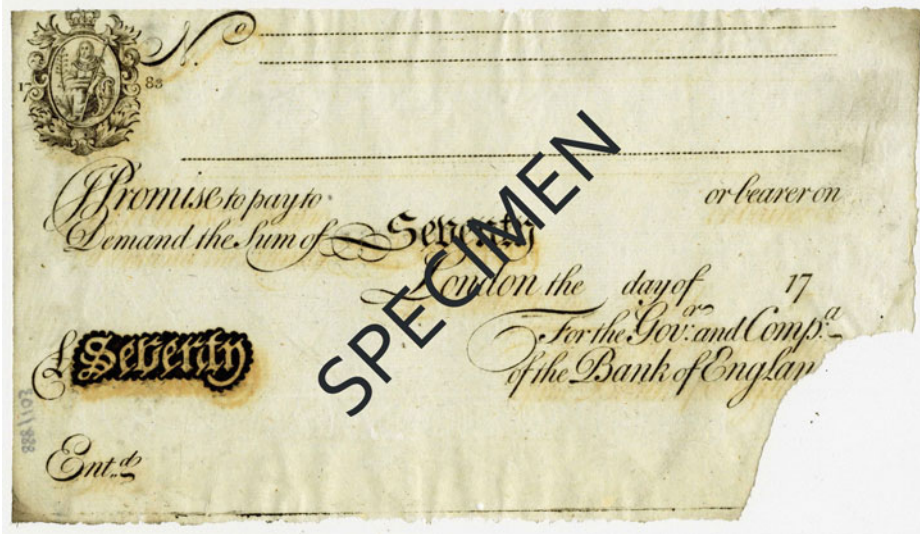 No
17 83
I Promise to pay to or bearer on
Demand the Sum of Seventy
London the day of 17
For the Govr. and Compa.
of the Bank of Englan
£ Seventy
Entd.
888/102
SPECIMEN